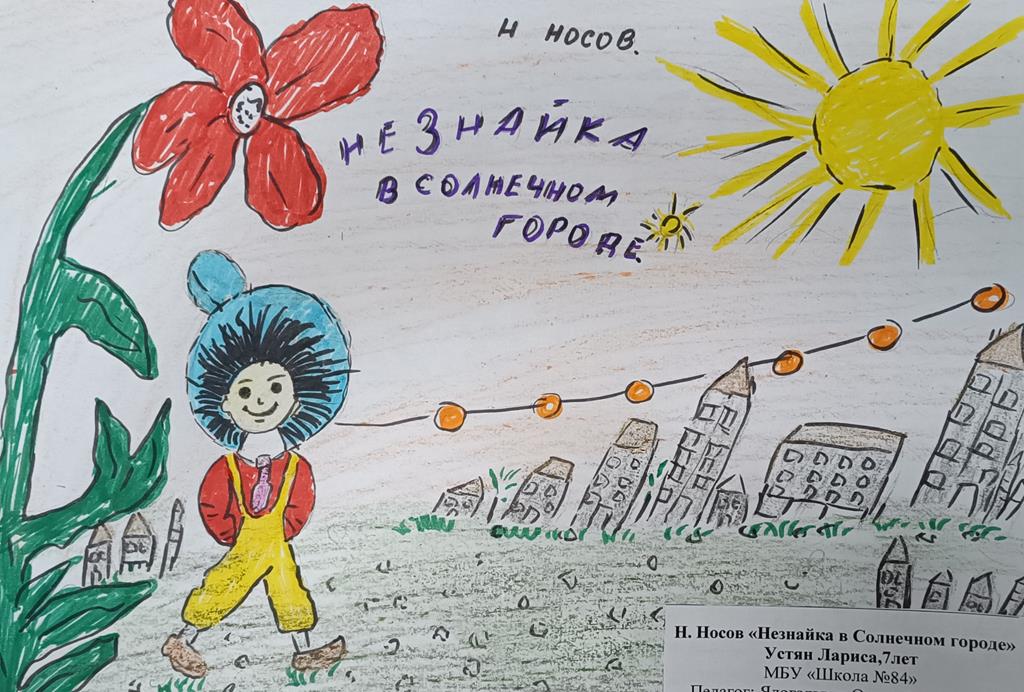 Н НОСОВ.
НЕЗНАЙКА
В СОЛНЕЧНОМ
ГОРОДЕ.
Н. Носов «Незнайка в Солнечном городе»
Устян Лариса,7лет
МБУ «Школа №84»
Педагог: